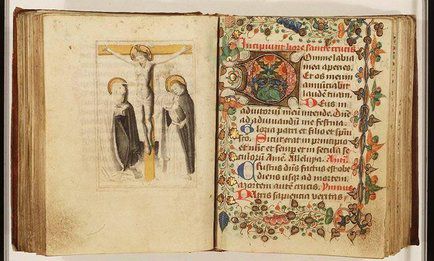 Incipiunt hore sancte crucis
Domine labia
mea aperies.
Et os meum
annuciabit
laudē tuam.
Deus in
adiutoriū meū intende. Dñe
ad adiuuandū me festina
Gloria patri et filio et spūi
scō. Sicut erat in principio
et nūc et semp et in secula se
culorū Amē. Alleluya. Antⁱ.
Christus dñs factus est obe
diens usq3 ad mortem
Mortem autē crucis. Ymnus
Patris sapientia veritas